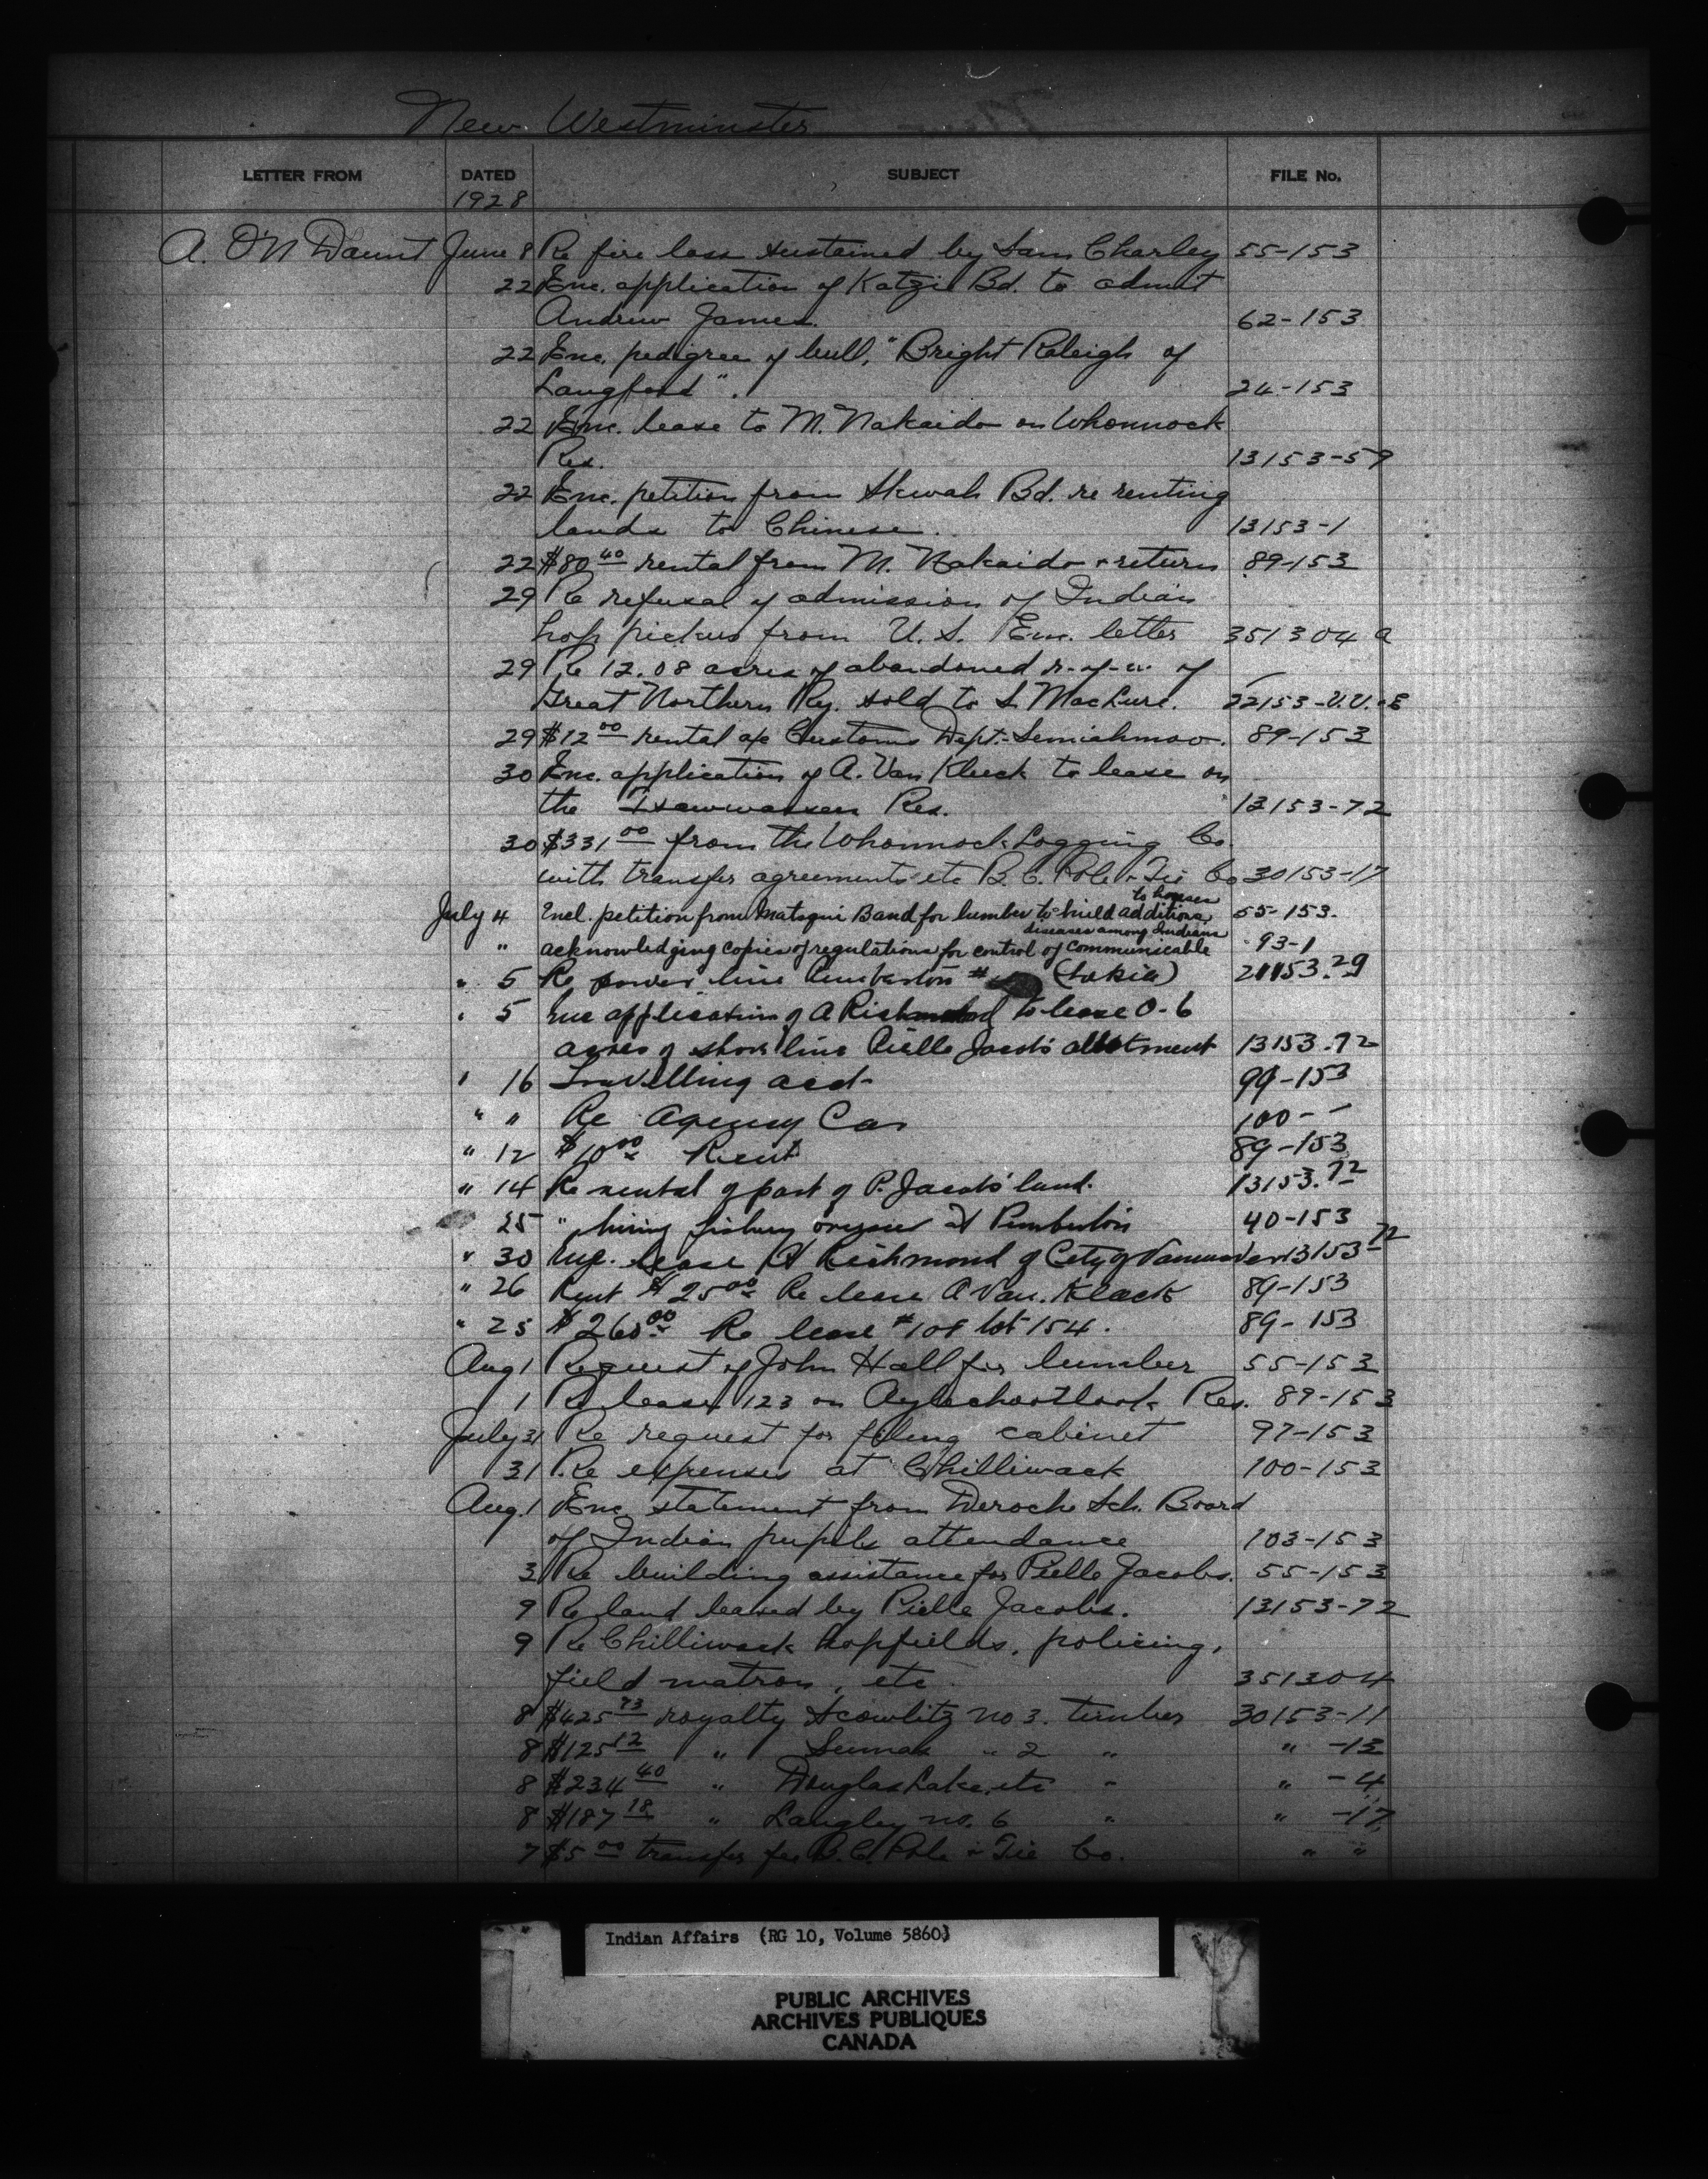 New Westminster
LETTER FROM DATED SUBJECT FILE No.
1928
A. O'N Daunt June 8 Re fire loss sustained by Sam Charley 55-153
22 Enc. application of Katzie Bd. to admit
Andrew James. 62-153
22 Enc. pedigree of bull, "Bright Raleigh of
Langford". 24-153
22 Enc. lease to M. Nakaido on Whonnock
Res. 13153-59
22 Enc. petition from Skwah Bd. re renting
lands to Chinese. 13153-1
22 $80 40 rental from M. Nakaido & return 89-153
29 Re refusal of admission of Indian
hop pickers from U.S. Enc. letter 351304 a
29 Re 12.08 acres of abandoned r-of-w of
Great Northern Ry. sold to S. MacLure. 22153-V.V.&E
29 $12 00 rental a/c Customs Dept. - Semiahmoo. 89-153
30 Enc. application of A. Van Kleek to lease on
the Tsawwassen Res. 13153-72
30 $331 00 from the Whonnock Logging Co.
with transfer agreements etc B.C. Pole & Tie Co 30153-17
to houses
July 4 Encl. petition from Matsqui Band for lumber to build additions 55-153.
diseases among Indians
" acknowledging copies of regulations for control of communicable 93-1
" 5 Re power line Pemberton # 21153.29
" 5 Enc application of A Richmond to lease 0-6
acres of shore line Pielle Jacob's allotment 13153.72
" 16 Travelling acct- 99-153
" " Re Agency Car 100- -
" 12 $10 00 Rent 89-153
" 14 Re rental of part of P. Jacobs' land. 13153.72
25 " hiring fishery overseer at Pemberton 40-153
" 30 lease A Richmond of City of Vancouver 13153-72
" 26 Rent $25 00 Re lease A Van. Kleck 89-153
" 25 $260 00 Re lease #108 lot 154. 89-153
Aug 1 Request of John Hall for lumber 55-153
1 Re lease 123 on Res. 89-153
July 31 Re request for filing cabinet 97-153
31 Re expenses at Chilliwack 100-153
Aug. 1 Enc. statement from Deroche Sch. Board
of Indian pupils attendance 103-153
3 Re building assistance for Pielle Jacobs. 55-153
9 Re land leased by Pielle Jacobs. 13153-72
9 Re Chilliwack hopfields, policing,
field matron, etc. 351304
8 $425 93 royalty Scowlitz no 3. timber 30153-11
8 $125 12 " Sumas " 2 " " -13
8 $234 40 " Douglas Lake, etc " " -4
8 $187 18 " Langley no. 6 " " -17
7 $5 00 transfer fee B.C. Pole & Tie Co. " "
Indian Affairs (RG 10, Volume 5860)
PUBLIC ARCHIVES
ARCHIVES PUBLIQUES
CANADA